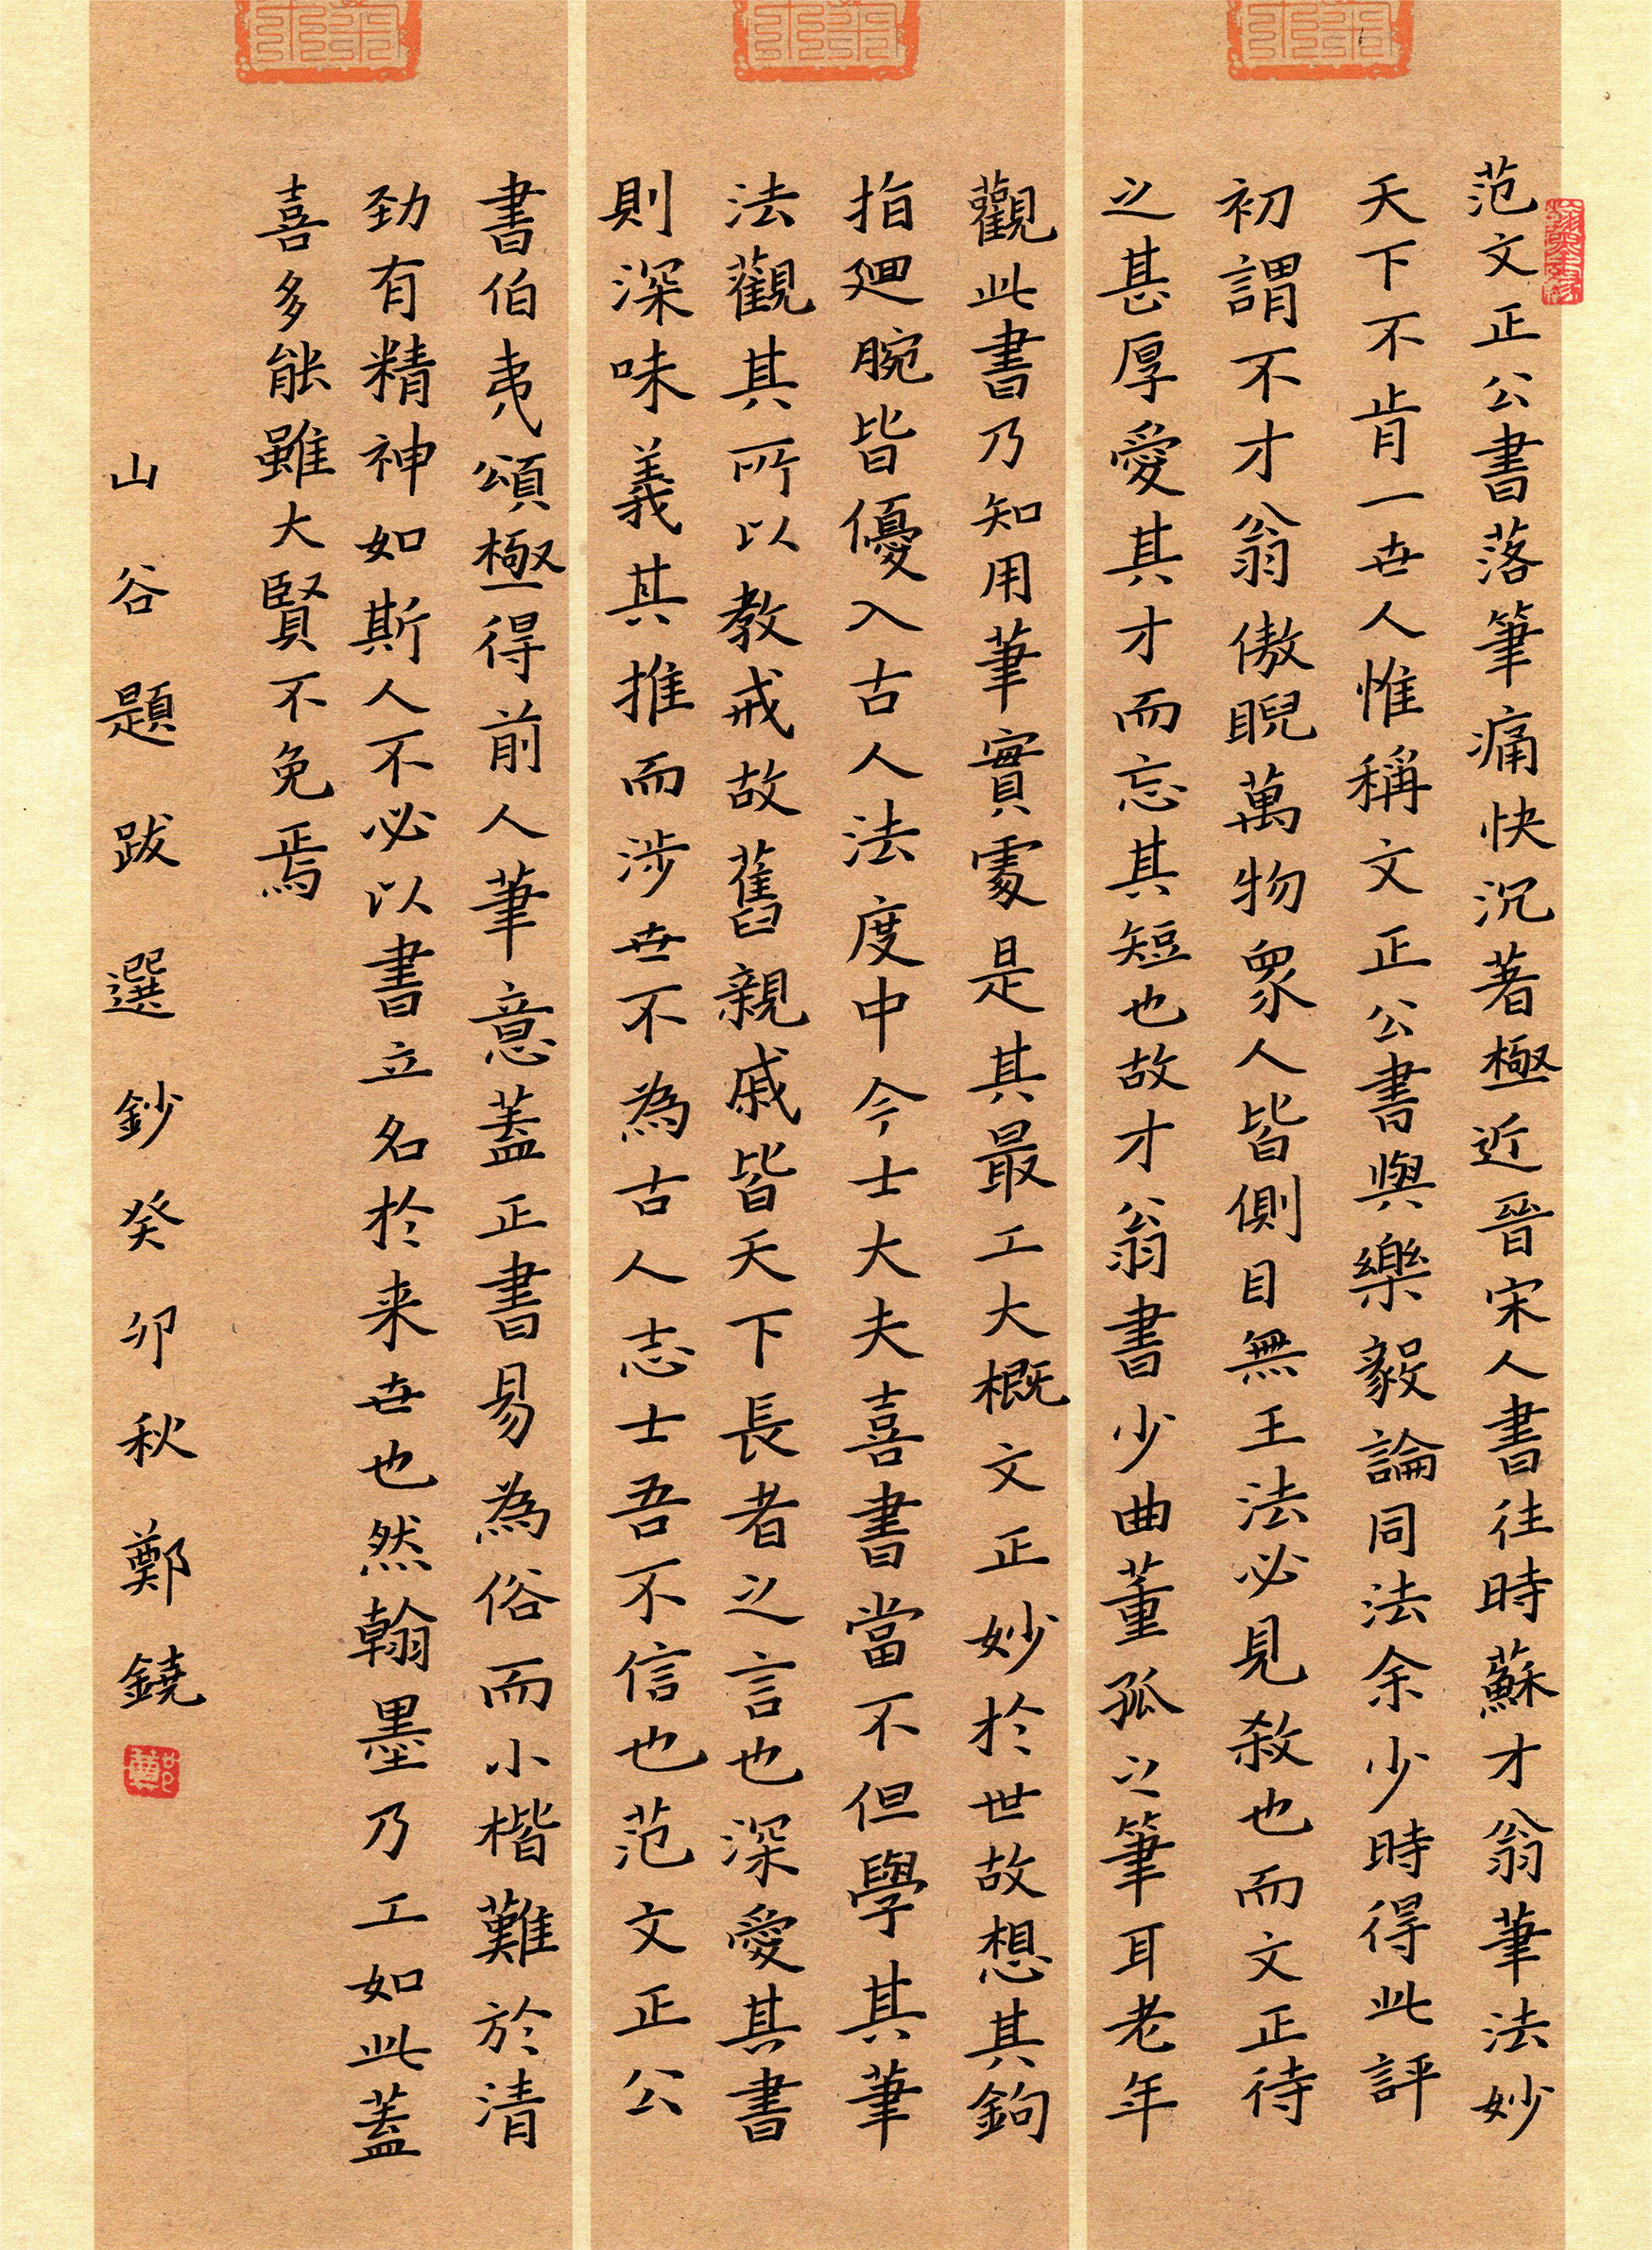 范文正公書落筆痛快沉著極近晉宋人書往時蘇才翁筆法妙
天下不肯一世人惟稱文正公書與樂毅論同法余少時得此評
初謂不才翁傲睨萬物眾人皆側目無王法必見殺也而文正待
之甚厚愛其才而忘其短也故才翁書少曲董孤之筆耳老年
觀此書乃知用筆實處是其最工大概文正妙於世故想其鉤
指廻腕皆優入古人法度中今士大夫喜書當不但學其筆
法觀其所以教戒故舊親戚皆天下長者之言也深愛其書
則深味義其推而涉世不為古人志士吾不信也范文正公
書伯夷頌極得前人筆意蓋正書易為俗而小楷難於清
勁有精神如斯人不必以書立名於来世也然翰墨乃工如此蓋
喜多能雖大賢不免焉
山谷題跋選鈔癸卯秋鄭鐃